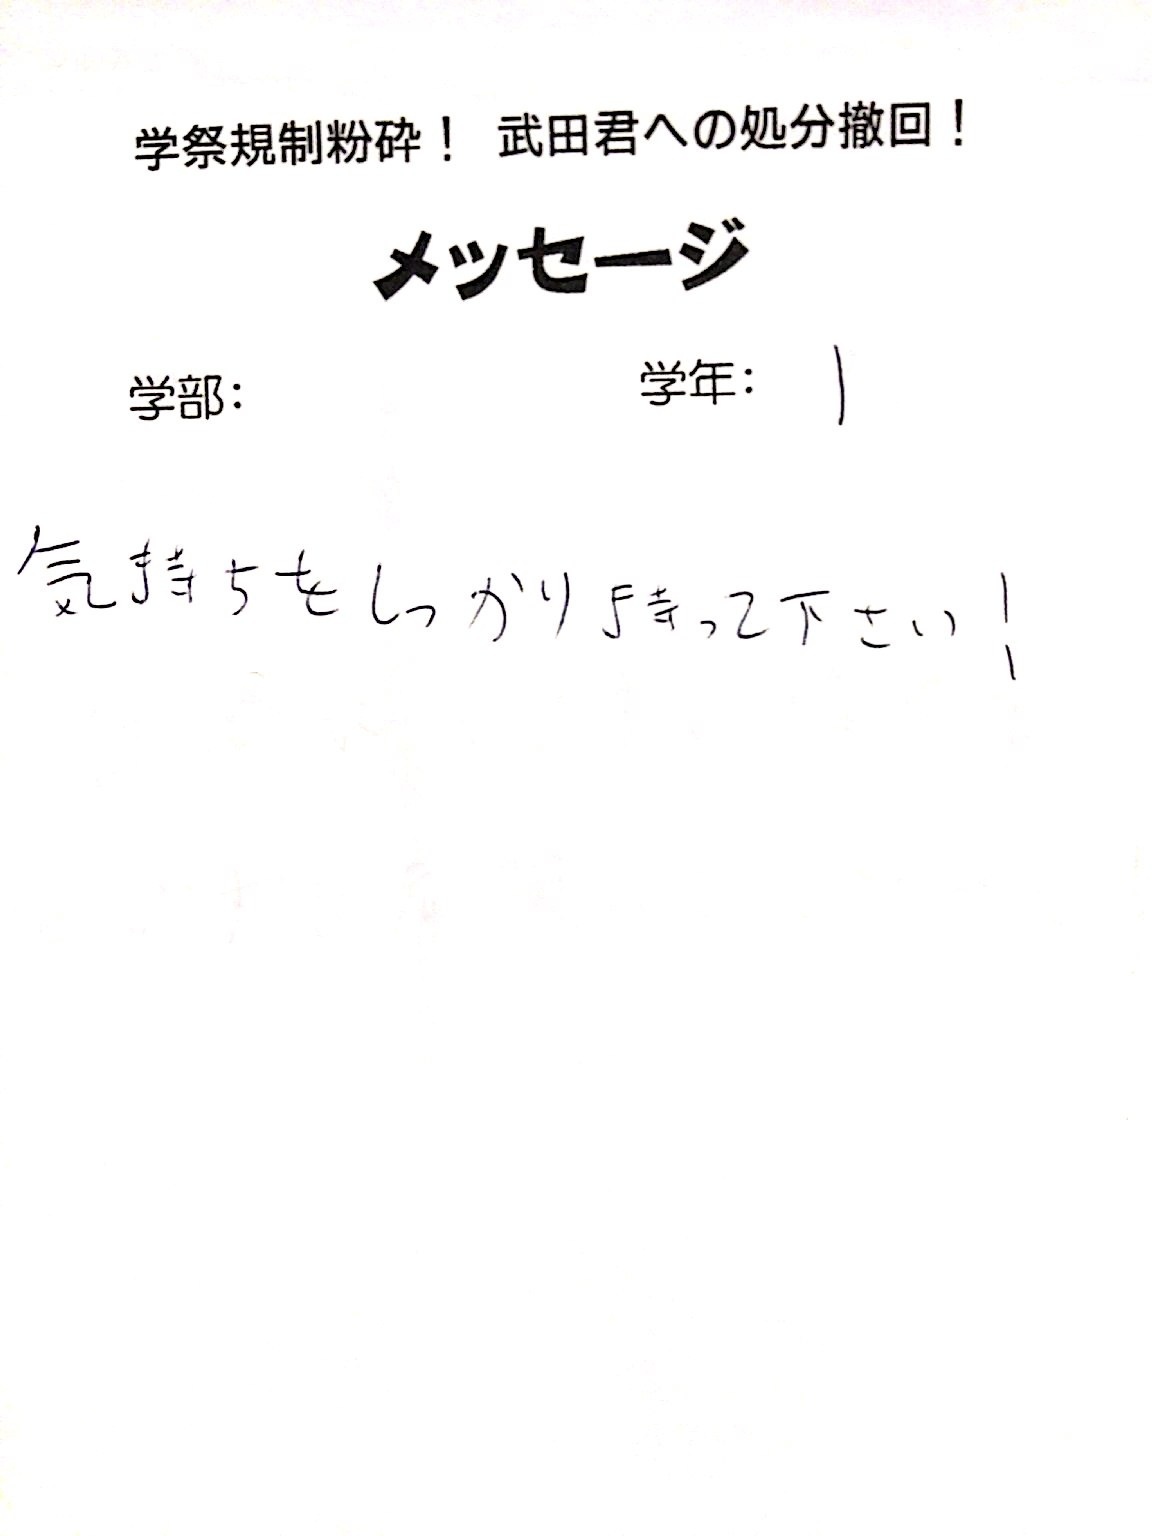 学祭規制粉砕！ 武田君への処分撤回！
メッセージ
学部： 学年： 1
気持ちをしっかり持って下さい！